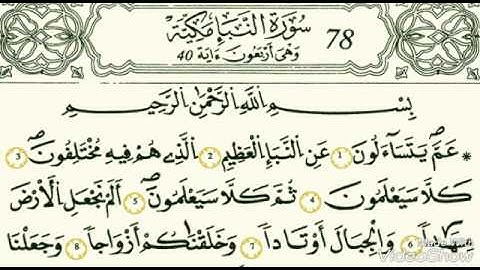 سُورَةُ النَّبَإِ مَكِّيَّةٌ
78
وَهِيَ أَرْبَعُونَ ءَايَةً 40
بِسْمِ اللَّهِ الرَّحْمَٰنِ الرَّحِيمِ
* عَمَّ يَتَسَآءَلُونَ 1 عَنِ النَّبَإِ الْعَظِيمِ 2 الَّذِي هُمْ فِيهِ مُخْتَلِفُونَ 3
كَلَّا سَيَعْلَمُونَ 4 ثُمَّ كَلَّا سَيَعْلَمُونَ 5 أَلَمْ نَجْعَلِ الْأَرْضَ
مِهَٰداً 6 وَالْجِبَالَ أَوْتَاداً 7 وَخَلَقْنَٰكُمْ أَزْوَاجاً 8 وَجَعَلْنَا
Made with
VideoShow